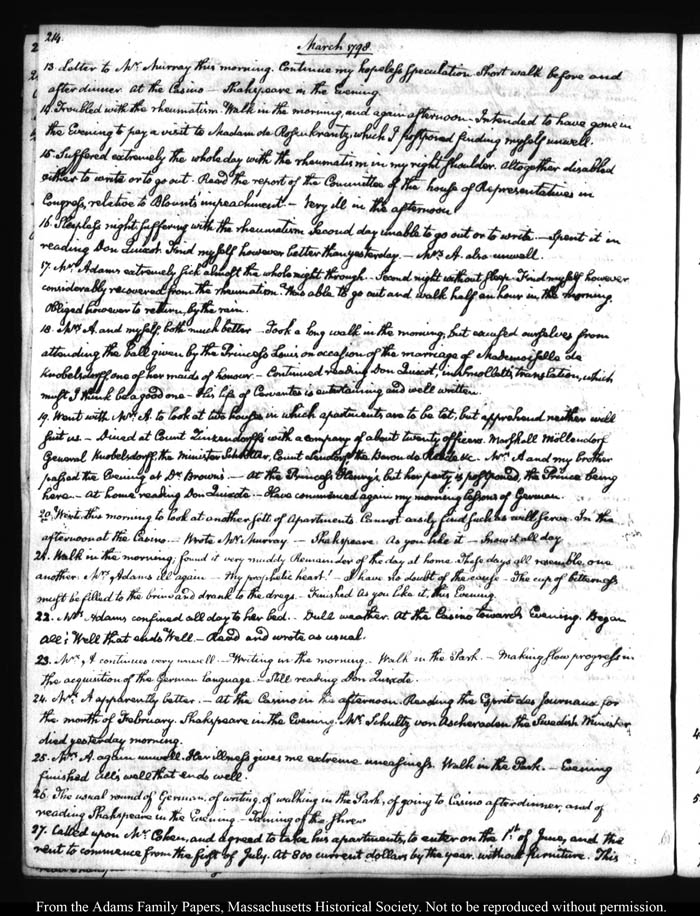 214
March 1798
13. Letter to Mr. Murray this morning. Continue my hopeless speculation. Short walk before and
after dinner. At the Casino — Shakspeare in the Evening.
14. Troubled with the rheumatism. Walk in the morning and again afternoon. Intended to have gone in
the Evening to pay a visit to Madam de Rosenkrantz, which I postponed finding myself unwell.
15. Suffered extremely the whole day with the rheumatism in my right shoulder. Altogether disabled
either to write or to go out. Read the report of the Committee of the house of Representatives in
Congress, relative to Blount's impeachment. — Very ill in the afternoon.
16. Sleepless night, suffering with the rheumatism. Second day unable to go out or to write. — Spent it in
reading Don Quixot. Find myself however better than yesterday. — Mrs. A. also unwell.
17. Mrs. Adams extremely sick almost the whole night through. Second night without sleep. Find myself however
considerably recovered from the rheumatism. Was able to go out and walk half an hour in the morning.
Obliged however to return, by the rain.
18. Mrs. A. and myself both much better. Took a long walk in the morning, but excused ourselves from
attending the ball given by the Princess Louis on occasion of the marriage of Mademoiselle de
Knobelsdorff, one of her maids of honour. — Continued reading Don Quixot, in Smollett's translation, which
must I think be a good one — His life of Cervantes is entertaining and well written.
19. Went with Mrs. A. to look at two houses in which apartments are to be let; but apprehend neither will
suit us — Dined at Count Zinzendorff's with a company of about twenty officers. Marshall Möllendorf
General Knobelsdorff, the Minister Count the Baron de Mrs. A and my brother
passed the Evening at Dr. Brown's — At the Princess Henry's but her party is postponed, the Prince being
here — At home reading Don Quixote — Have commenced again my morning lessons of German.
20. Went this morning to look at another sett of Apartments. Cannot easily find such as will serve. In the
afternoon at the Casino — Wrote Mr. Murray — Shakspeare. As you like it — Snow'd all day.
21. Walk in the morning; found it very muddy. Remainder of the day at home. These days all resemble one
another. Mrs. Adams ill again — My prophetic heart! — I have no doubt of the cause — The cup of bitterness
must be filled to the brim and drank to the dregs. — Finished As you like it, this Evening.
22. Mrs. Adams confined all day to her bed. Dull weather. At the Casino towards Evening. Began
All's Well that ends Well. — Read and wrote as usual.
23. Mrs. A continues very unwell. — Writing in the morning. Walk in the Park. — Making slow progress in
the acquisition of the German language. — Still reading Don Quixote.
24. Mrs. A apparently better. — At the Casino in the afternoon. Reading the Esprit des Journaux for
the month of February. Shakspeare in the Evening. Mr. Schultz von Ascheraden the Swedish Minister
died yesterday morning.
25. Mrs. A. again unwell. Her illness gives me extreme uneasiness. Walk in the Park. — Evening
finished All's well that ends well.
26. The usual round of German, of writing, of walking in the Park, of going to Casino after dinner, and of
reading Shakspeare in the Evening — Taming of the Shrew
27. Called upon Mr. Cohen, and agreed to take his apartments, to enter on the 1st. of June, and the
rent to commence from the first of July. At 800 current dollars by the year. without furniture. This
From the Adams Family Papers, Massachusetts Historical Society. Not to be reproduced without permission.